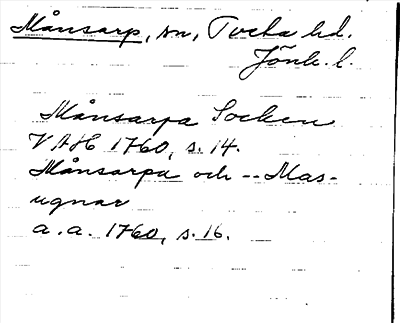 Månsarp, sn, Tveta hd.
Jönk. l.
Månsarpa Socken
VAH 1760, s. 14.
Månsarpa och -- Mas-
ugnar
a. a. 1760, s. 16.